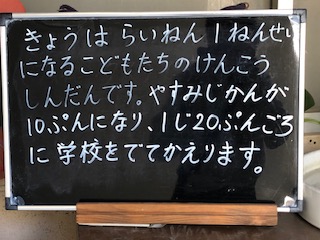 きょうは らいねん 1ねんせい
になるこどもたちのけんこう
しんだんです。やすみじかんが
10ぷんになり、1じ20ぷんごろ
に学校をでてかえります。